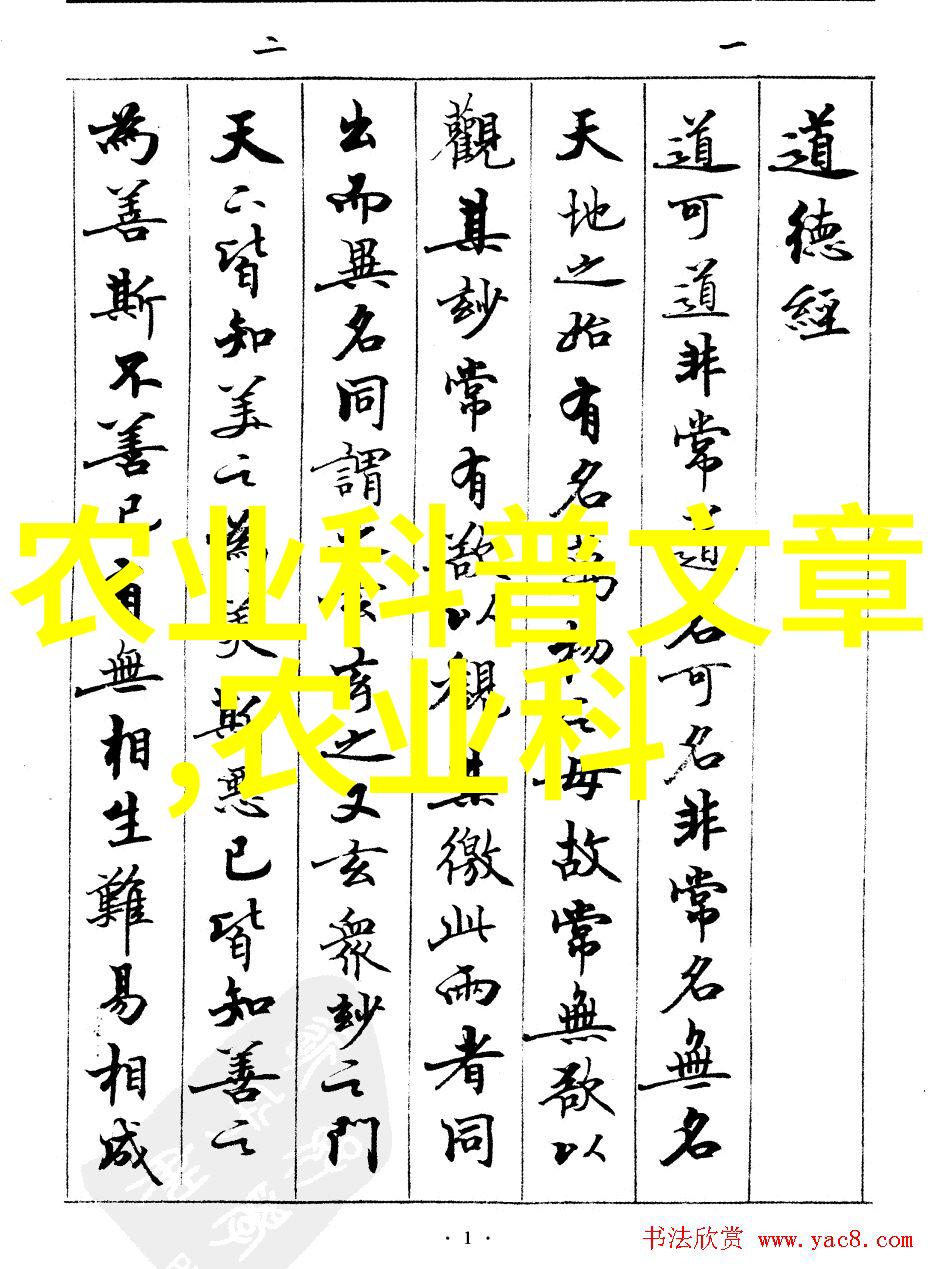 一
道德經
道可道非常道名可名非常名無名
天地之始有名萬物之母故常無欲以
觀其玅常有欲以觀其徼此兩者同
二
出而異名同謂之玄玄之又玄眾玅之門
天下皆知美之為美斯惡已皆知善之
為善斯不善已有無相生難易相成
农业科普文章
,农业科
· 1 ·
书法欣赏 www.yac8.com